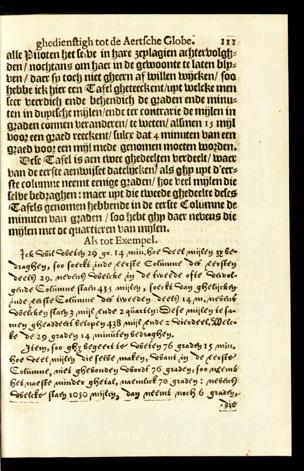 ghedienstigh tot de Aertsche Globe. 111
alle Piloten het selve in hare zeplagien achtervolgh-
den / nochtans om haer in de gewoonte te laten bly-
ven / daer sy toch niet gheern af willen wijcken / soo
hebbe ick hier een Tafel ghesteeckent / upt welcke men
seer veerdich ende behendich de graden ende minu-
ten in duytsche mijlen / ende ter contrarie de mijlen in
graden connen veranderen / te weten / alsmen 15 mijl
voor een graed reeckent / sulcx dat 4 minuten van een
graed voor een mijl mede genomen moeten worden.
Dese Tafel is aen twee ghedeelten verdeelt / waer
van de eerste aenwijset datelijcken / als ghy upt d'eer-
ste columne neemt eenige graden / hoe veel mijlen die
selve bedraghen : maer upt die tweede ghedeelte deses
Tafels genomen hebbende in de eerste Columne de
minuten van graden / soo hebt ghy daer nevens die
mijlen met de quartieren van mijlen.
Als tot Exempel.
Ick wil weten 29 gr. 14 min. hoe veel mijlen sy be-
draghen, soo soeckt inde eerste Columne des eersten
deels 29. nevens welcke in de tweede ofte vervol-
gende Columne staen 435 mijlen, soeckt van ghelijcken
inde eerste Columne des tweeden deels 14 m. nevens
welcken staen 3 mijl ende 2 quarten: Dese mijlen te sa-
men gheaddeert belopen 438 mijl ende 2 vierdeel, Welc-
ke de 29 graden 14 minuten bedraghen.
Item, soo ghy begeert te weten 76 graden 15 min,
hoe veel mijlen die selve maken, want in de eerste
Columne, niet ghevonden wordt 76 graden, soo neemt
het naeste minder ghetal, naemlick 70 graden: nevens
welcke staen 1050 mijlen, dan neemt noch 6 graden,
die